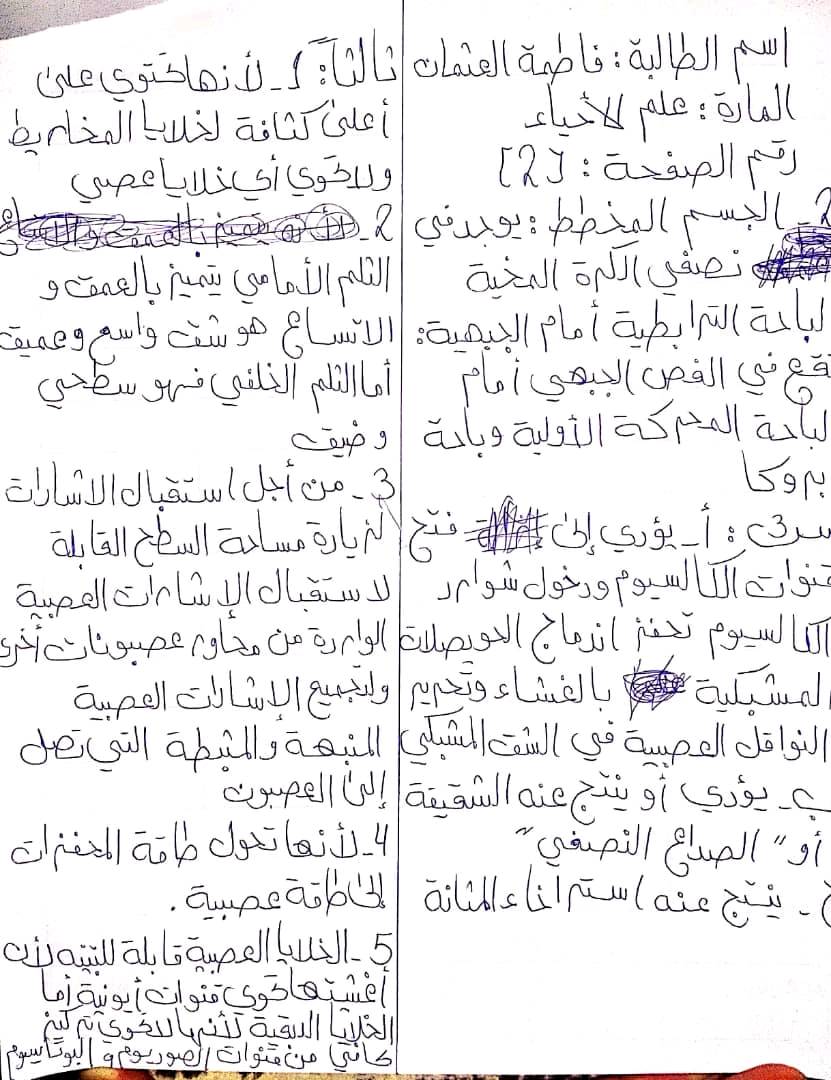 اسم الطالبة : فاطمة العثمان
المادة : علم الأحياء
رقم الصفحة : [2]
2_ الجسم المخطط : يوجد في
نصفي الكرة المخية
لباحة الترابطية أمام الجبهية :
قع في الفص الجبهي أمام
لباحة المحركة الأولية وباحة
بروكا
س3 : أ_ يؤدي إلى فتح
قنوات الكالسيوم ودخول شوارد
الكالسيوم تحفز اندماج الحويصلات
المشبكية بالغشاء وتحرير
النواقل العصبية في الشق المشبكي
ب_ يؤدي أو ينتج عنه الشقيقة
أو "الصداع النصفي"
ج_ ينتج عنه استرخاء المثانة
ثالثاً : 1_ لأنها تحتوي على
أعلى كثافة لخلايا المخاريط
ولا تحوي أي خلايا عصي
2_
الثلم الأمامي يتميز بالعمق و
الاتساع هو شق واسع وعميق
أما الثلم الخلفي فهو سطحي
وضيق
3_ من أجل استقبال الاشارات
لزيادة مساحة السطح القابلة
لاستقبال الإشارات العصبية
الواردة من محاور عصبونات أخرى
ولتجميع الإشارات العصبية
المنبهة والمثبطة التي تصل
إلى العصبون
4_ لأنها تحول طاقة المحفزات
إلى طاقة عصبية .
5_ الخلايا العصبية قابلة للتنبه لأن
أغشيتها تحوي قنوات أيونية أما
الخلايا الدبقية لأنها لا تحوي تركيز
كافي من قنوات الصوديوم و البوتاسيوم